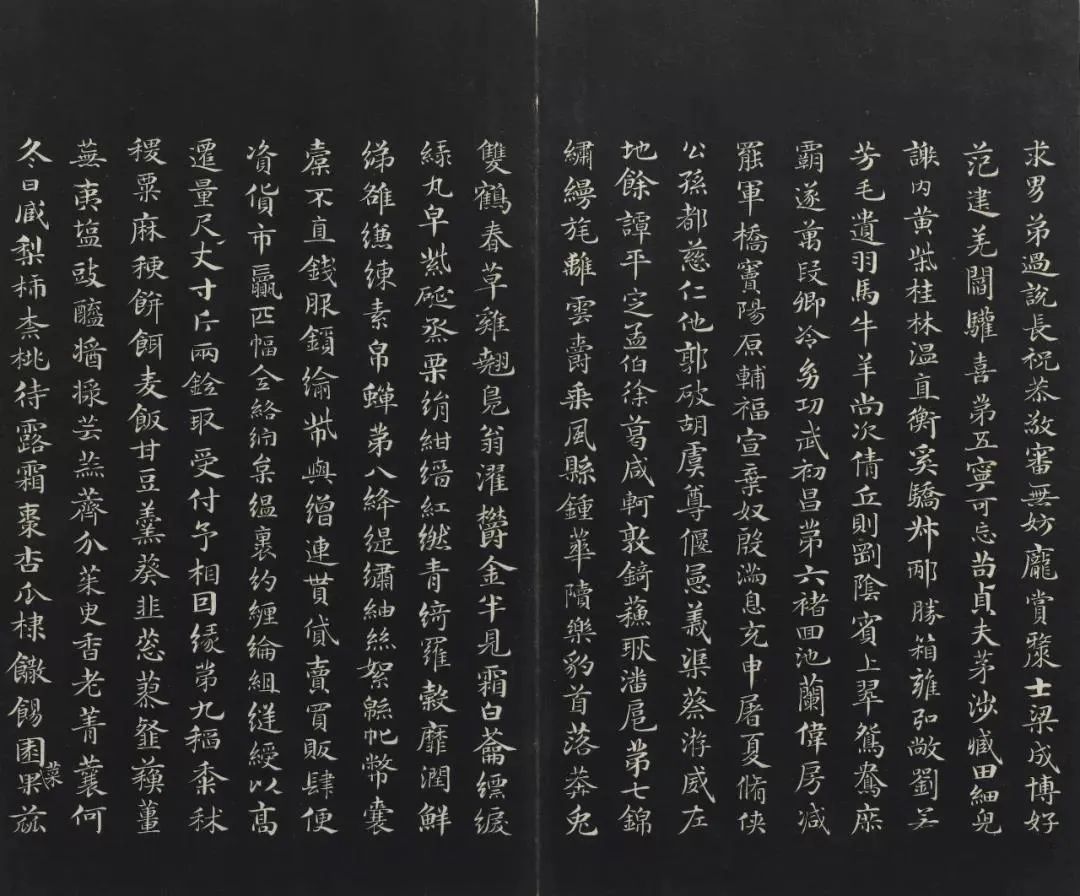 求男弟過說長祝恭敬審無妨龐賞士梁成博好
范建羌閻驩喜第五寧可忘苟貞夫茅涉臧田細兒
謝內黃柴桂林溫直衡奚驕叔邴勝箱雍弘敞劉若
芳毛遺羽馬牛羊尚次倩丘則劉陰賓上翠鴛鴦庶
霸遂萬段卿冷幼功武初昌第六褚回池蘭偉房減
罷軍橋竇陽原輔福宣棄奴殷滿息充申屠夏脩俠
公孫都慈仁他郭破胡虞尊偃憲義渠蔡游威左
地餘譚平定孟伯徐葛咸軻敦錡蘇耿潘扈第七錦
繡縵旄離雲爵乘風縣鍾華隫樂豹首落莽兔
雙鶴春草雞翹鳧翁濯鬱金半見霜白蘥縹綟
綠丸皁紫碇烝栗絹紺縉紅繎青綺羅縠靡潤鮮
綈雒縑練素帛蟬第八絳緹繡紬絲絮緜帊幣囊
橐不直錢服鎖緰幣與繒連貰貸賣買販肆便
資貨市贏匹幅全絡納枲縕裏約纏綸組縌綬以高
遷量尺丈寸斤兩銓取受付予相因緣第九稻黍秫
稷粟麻稉餅餌麦飯甘豆羹葵韭葱蓼䪥蘇薑
蕪荑塩豉醯醬芸蒜薺介茱萸香老菁蘘何
冬日臧梨柿柰桃待露霜棗杏瓜棣饊餳園菜果茲